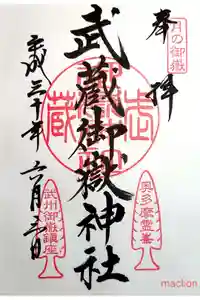 奉拝
月の御嶽
武蔵御嶽神社
奥多摩霊峯
武州御嶽鎮座
平成三十年六月三日
maclion